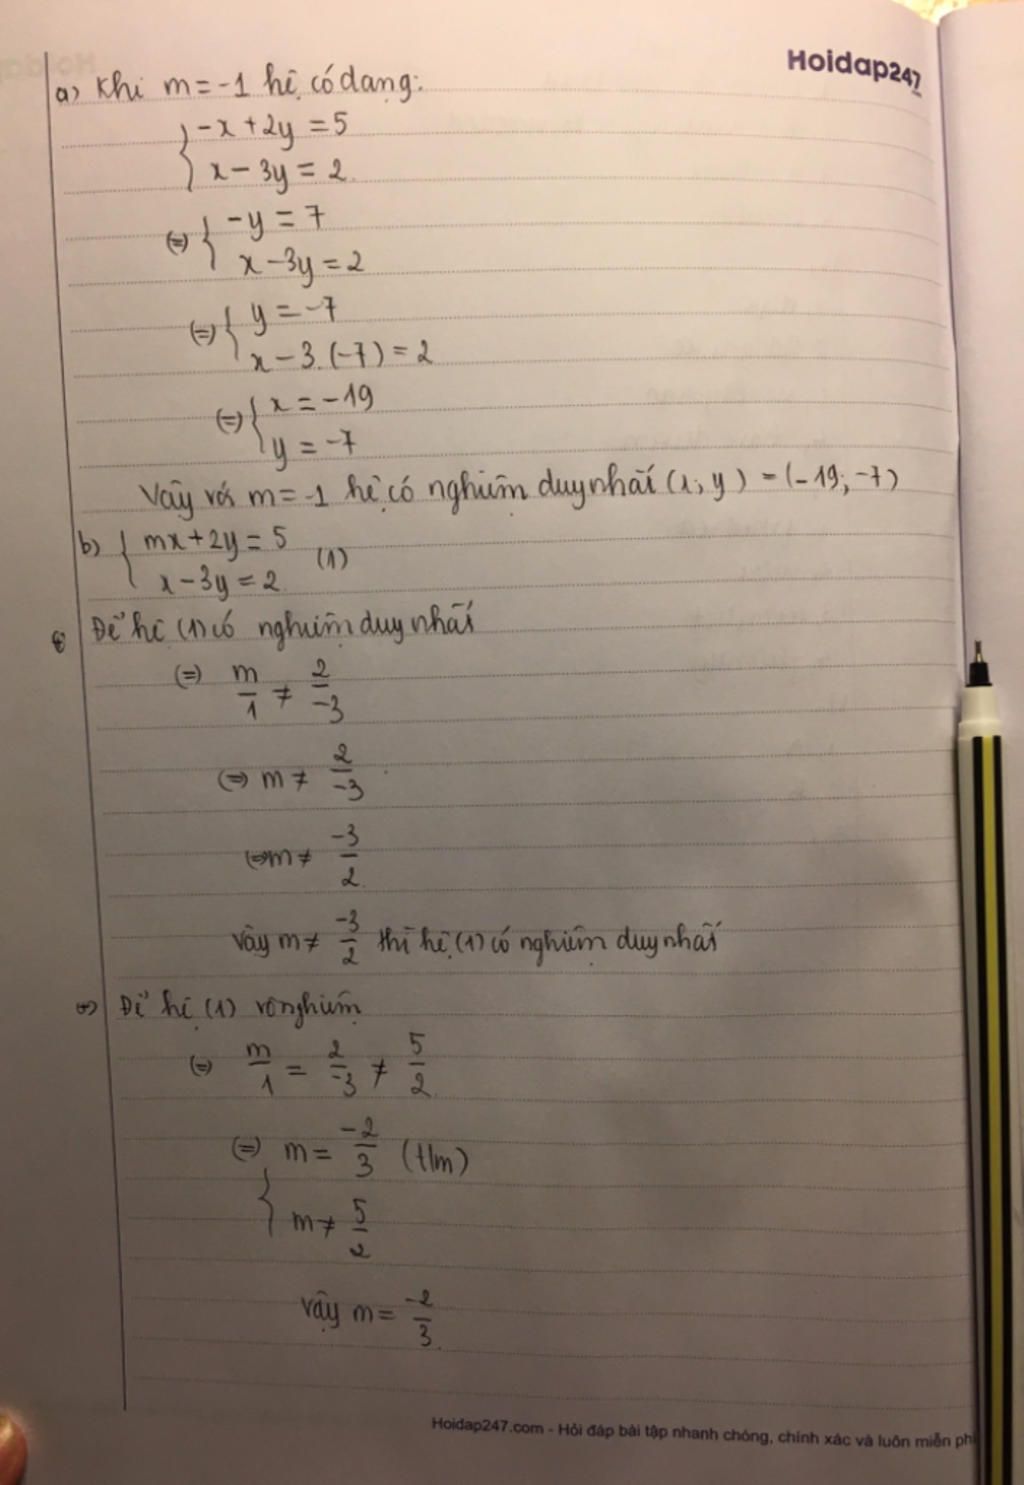 Hoidap247
a) Khi m = -1 hệ có dạng:
{ -x + 2y = 5
x - 3y = 2.
(=) { -y = 7
x - 3y = 2
(=) { y = -7
x - 3.(-7) = 2
(=) { x = -19
y = -7
Vậy với m = -1 hệ có nghiệm duy nhất (x; y) = (-19; -7)
b) { mx + 2y = 5
x - 3y = 2. (1)
Để hệ (1) có nghiệm duy nhất
(=) m/1 ≠ 2/-3
(=) m ≠ 2/-3
(=) m ≠ -3/2
Vậy m ≠ -3/2 thì hệ (1) có nghiệm duy nhất
Để hệ (1) vô nghiệm
(=) m/1 = 2/-3 ≠ 5/2
(=) { m = -2/3 (t/m)
m ≠ 5/2
Vậy m = -2/3
Hoidap247.com - Hỏi đáp bài tập nhanh chóng, chính xác và luôn miễn ph